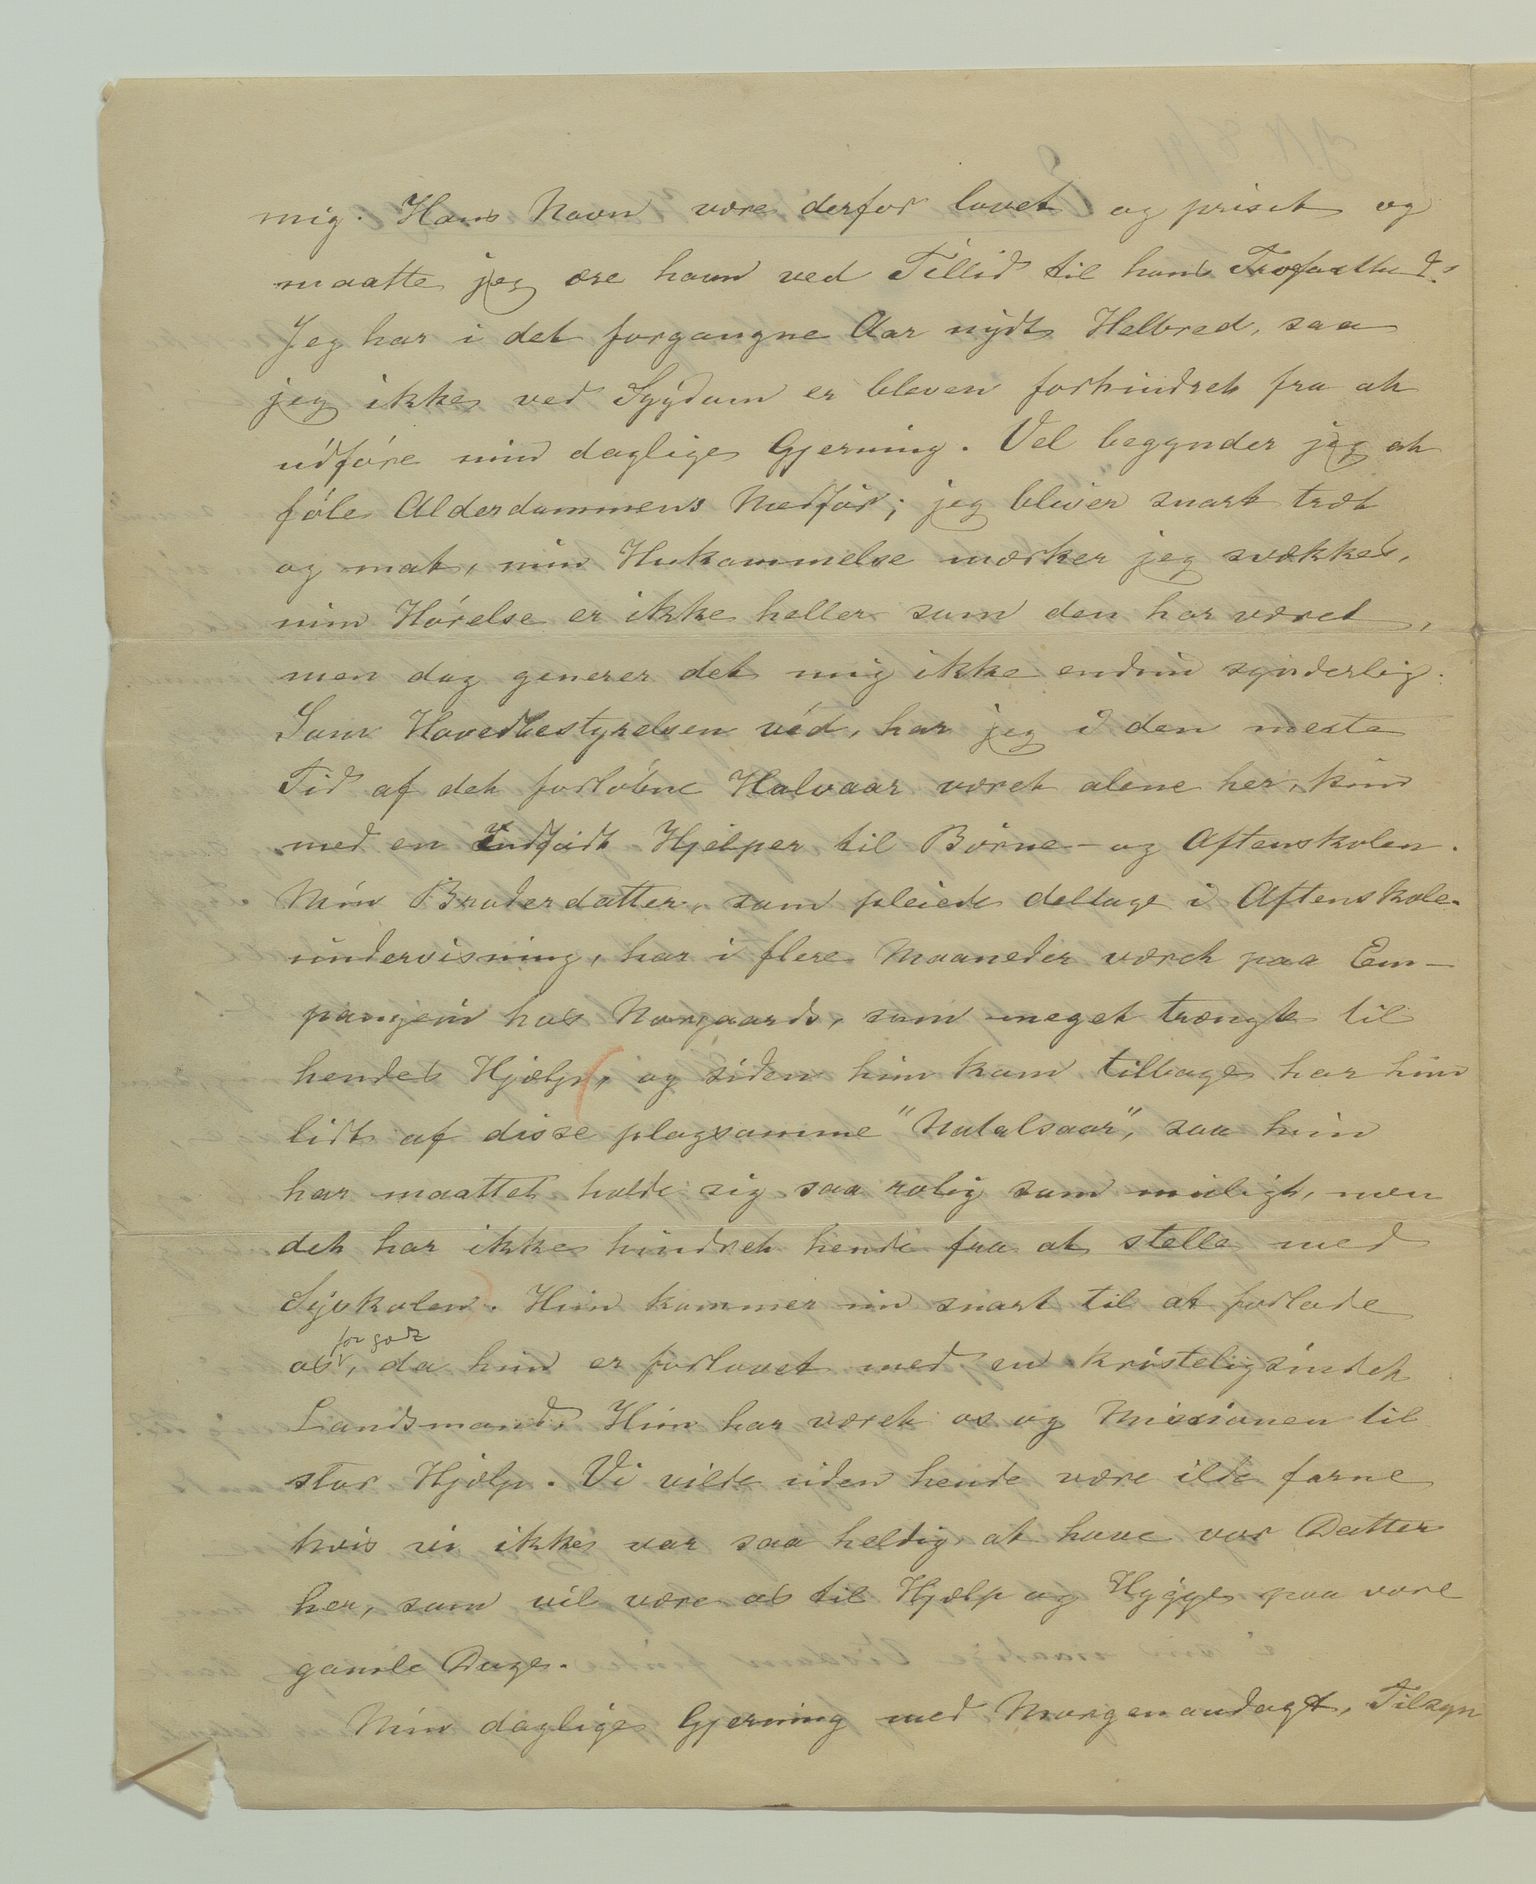 mig. Hans Navn være derfor lovet og priset og
maatte jeg ære ham ved Tillid til hans Trofasthed.
Jeg har i det forgangne Aar nydt Helbred, saa
jeg ikke ved Sygdom er bleven forhindret fra at
udføre min daglige Gjerning. Vel begynder jeg at
føle Alderdommens Medfør; jeg bliver snart træt
og mat, min Hukommelse mærker jeg svækkes,
min Hørelse er ikke heller som den har været,
men dog generer det mig ikke endnu synderlig.
Som Hovedbestyrelsen véd, har jeg i den meste
Tid af det forløbne Halvaar været alene her, kun
med en indfødt Hjelper til Børne- og Aftenskolen.
Min Broderdatter, som pleiede deltage i Aftenskole-
undervisning, har i flere Maaneder været paa Em-
pangeni hos Norgaards, som meget trængte til
hendes Hjælp, og siden hun kom tilbage har hun
lidt af disse plagsomme "Natalsaar", saa hun
har maattet holde sig saa rolig som muligt, men
det har ikke hindret hende fra at stelle med
Syskolen. Hun kommer nu snart til at forlade
os for godt, da hun er forlovet med en kristeligsindet
Landsmand. Hun har været os og Missionen til
stor Hjælp. Vi vilde uden hende være ilde farne
hvis vi ikke var saa heldig at have vor Datter
her, som vil være os til Hjælp og Hygge paa vore
gamle Dage.
Min daglige Gjerning med Morgenandagt, Tilsyn